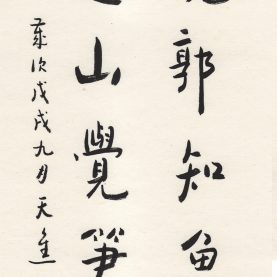 郭知魚
山覺笋
歲次戊戌九月天